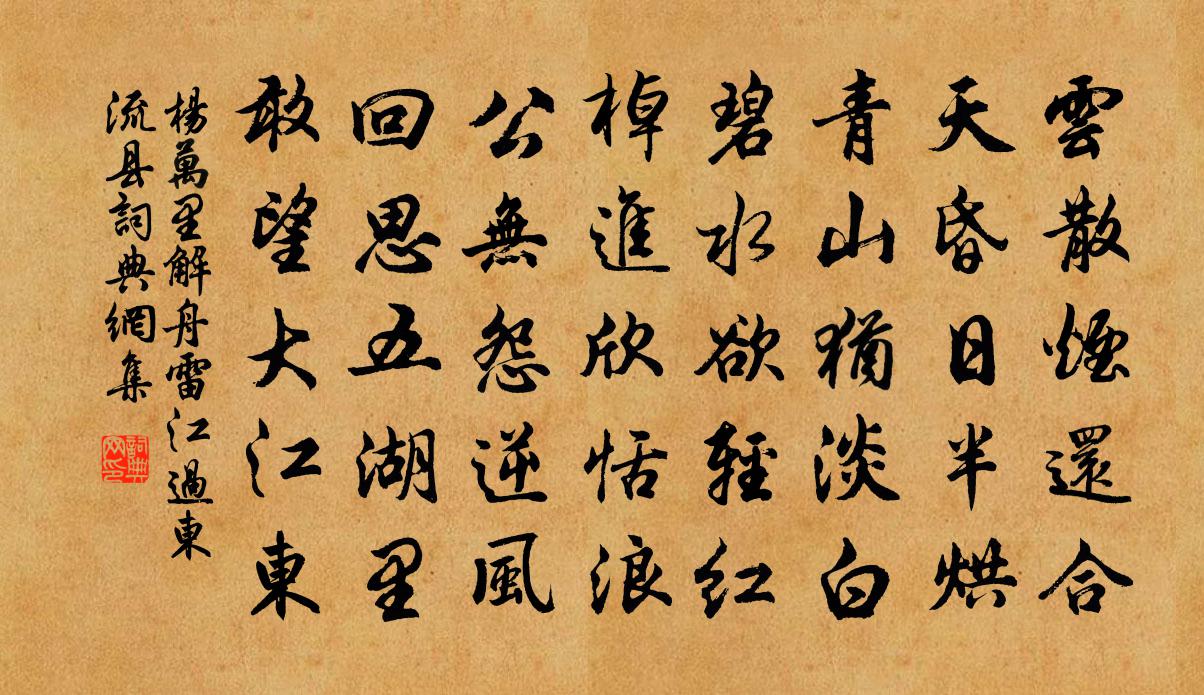 雲散煙還合
天昏日半烘
青山猶淡白
碧水欲輕紅
棹進欣恬浪
公無怨逆風
回思五湖里
敢望大江東
楊萬里解舟雷江過東
流县詞典網集
詞典网印